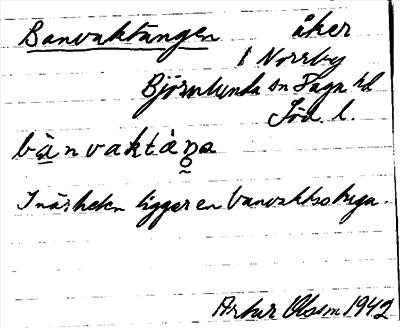 Banvaktängen åker
1 Norrby
Björnlunda sn Daga hd
Söd. l.
bànvaktáŋa
I närheten ligger en banvaktsstuga.
Artur Olsson 1942